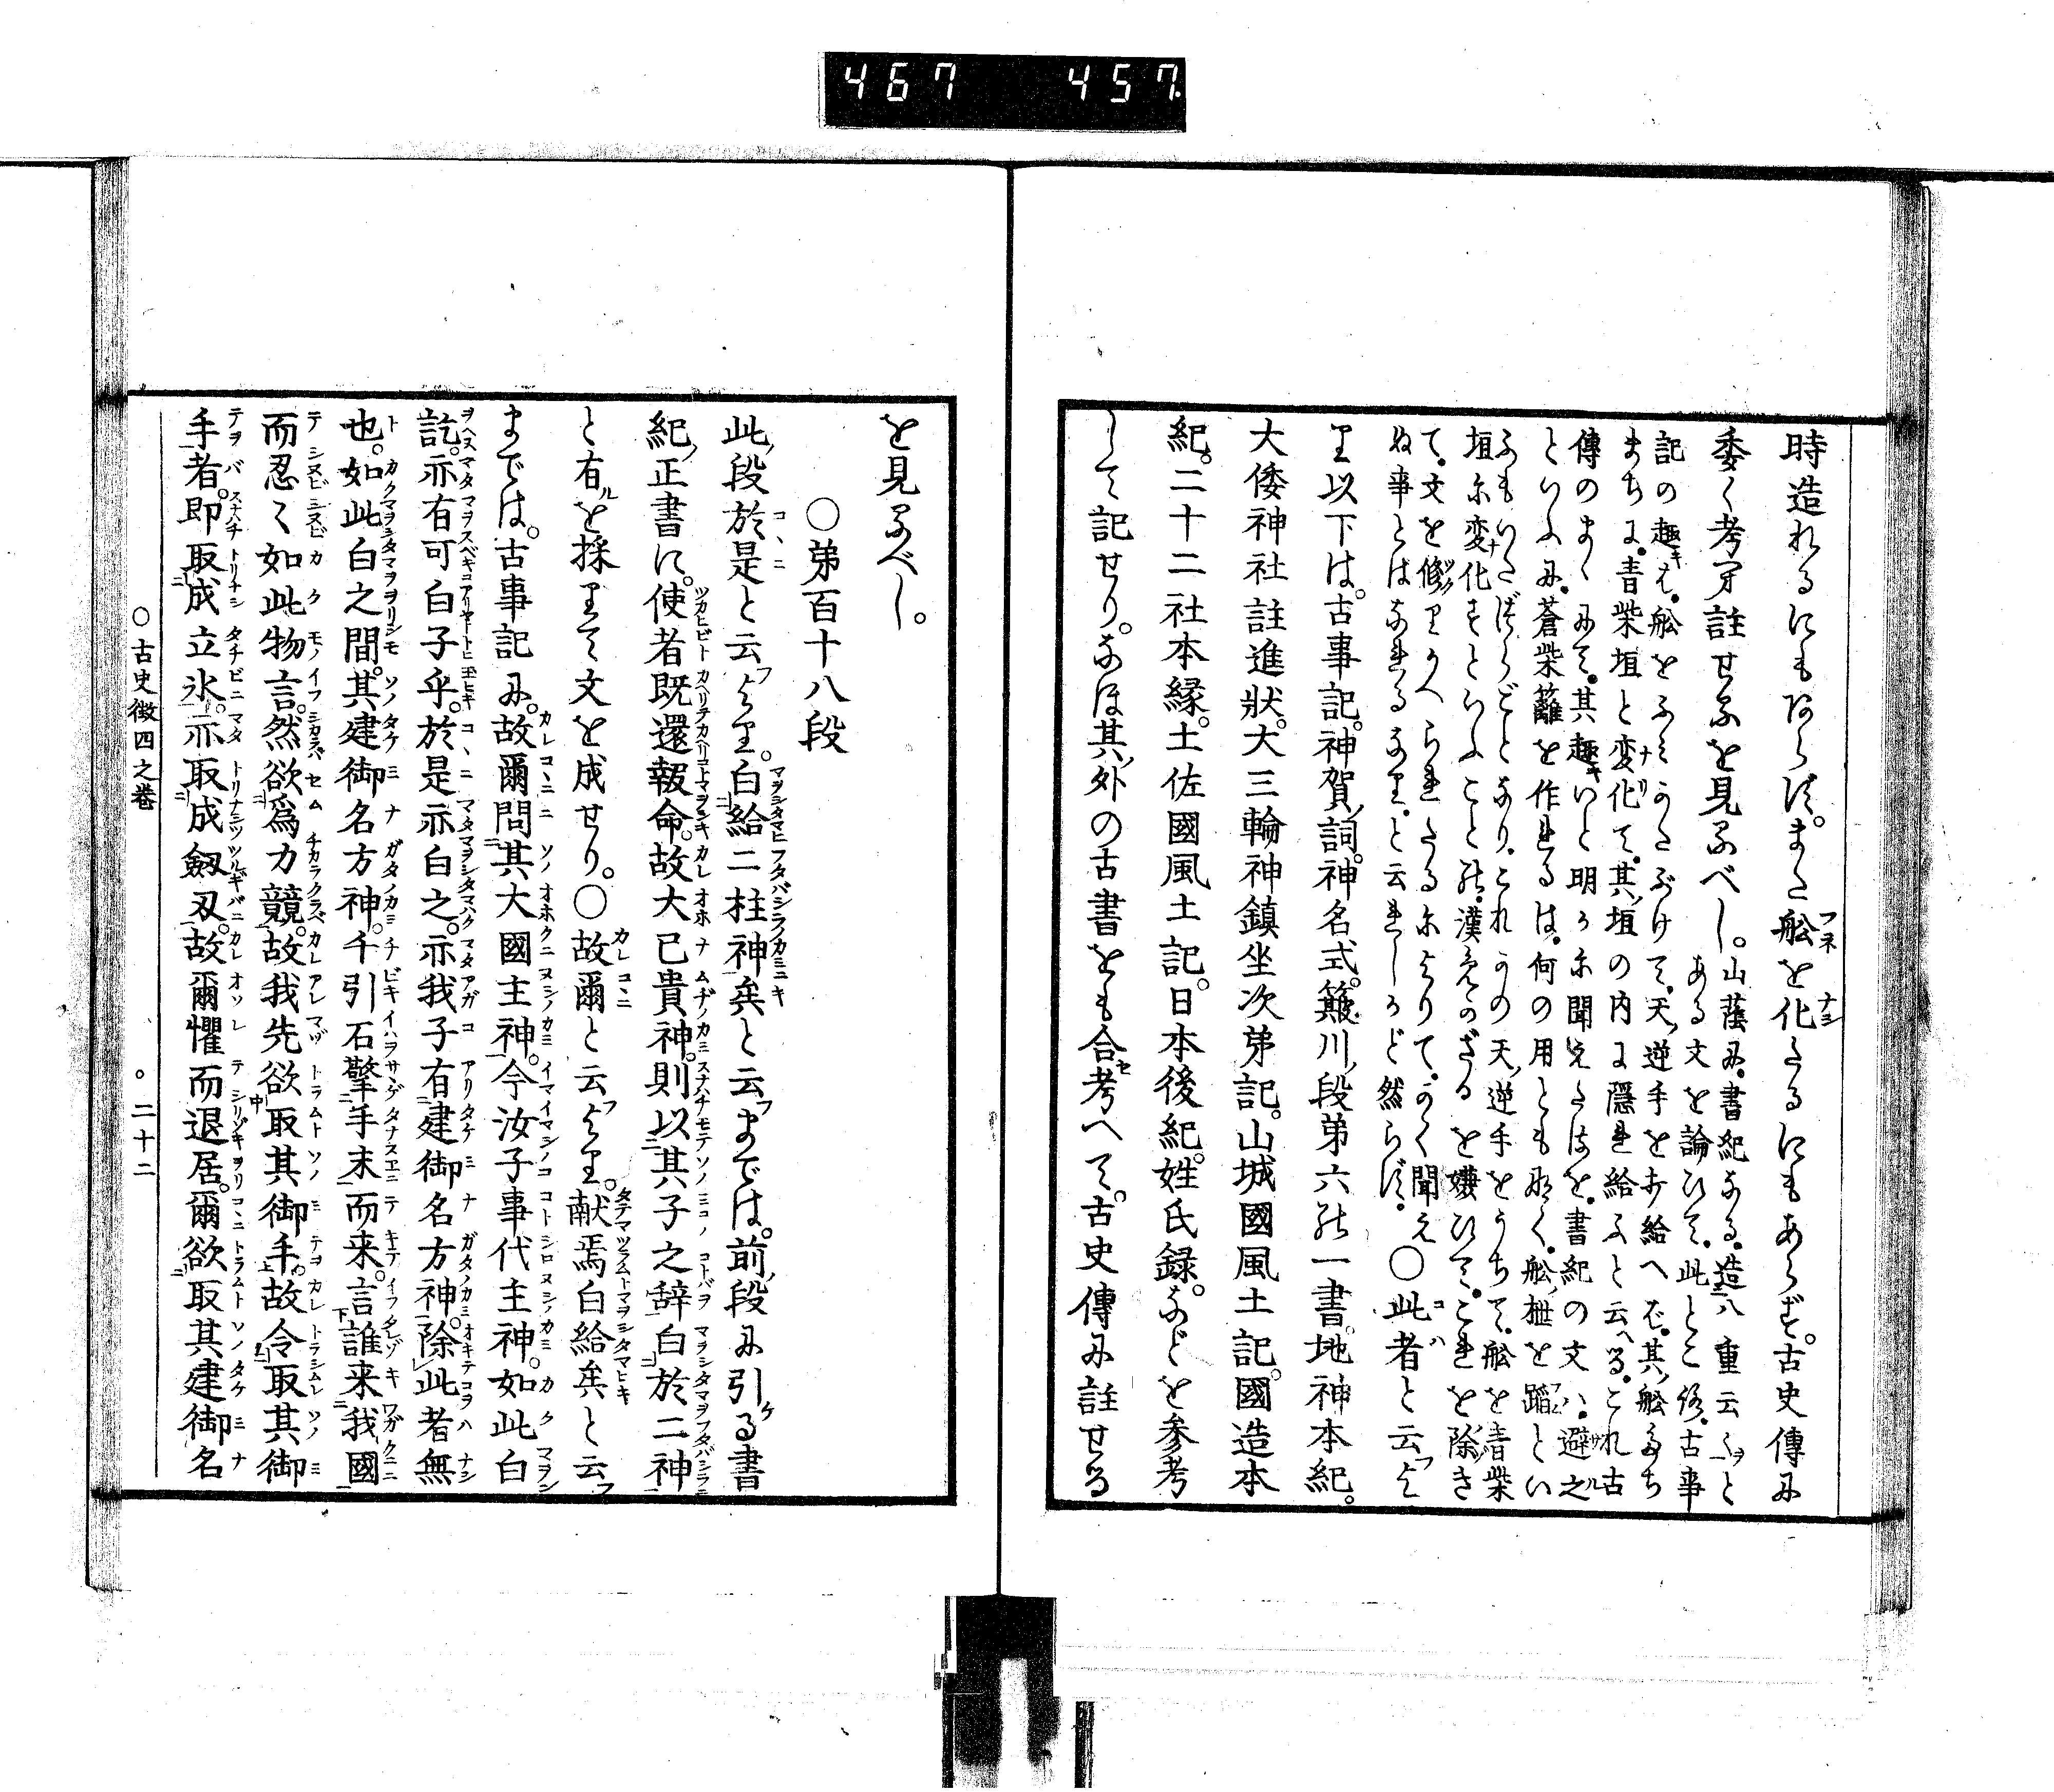 467 457.
時造れるにもあらず。また舩を化たるにもあらず。古史傳に
委く考へ註せるを見るべし。山蔭に。書紀なる。造八重云々と
ある文を論ひて。此とこ路。古事
記の趣きは。舩をふみかたぶけて。天ノ逆手を打給へば。其ノ舩たち
まちに。青柴垣と変化て。其ノ垣の内に隱れ給ふと云へる。これ古
傳のまゝにて。其趣きいと明かに聞えたるを。書紀の文ハ。避之
といふに。蒼柴籬を作れるは。何の用とも無く。舩ノ枻を蹈とい
ふもいたづらごとなり。これかの天ノ逆手をうちて。舩を青柴
垣に変化すといふこと能。漢めかざるを嫌ひて。これを除き
て。文を修りかへられたるによりて。かく聞え
ぬ事とはなれるなり。と云れしかど然らず。〇此者と云フよ
り以下は。古事記。神賀ノ詞。神名式。簸川ノ段第六能一書。地神本紀。
大倭神社註進狀。大三輪神鎮坐次第記。山城國風土記。國造本
紀。二十二社本縁。土佐國風土記。日本後紀。姓氏録。などを参考
して記せり。なほ其ノ外の古書をも合セ考へて。古史傳に註せる
を見るべし。
〇第百十八段
此ノ段於是と云フより。白給二柱神矣と云フまでは。前ノ段に引ける書
紀ノ正書に。使者既還報命。故大己貴神。則以其子之辞白於二神
と有ルを採りて文を成せり。〇故爾と云フより。献焉白給矣と云フ
までは。古事記に。故爾問其大國主神。今汝子事代主神。如此白
訖。亦有可白子乎。於是亦白之。亦我子有建御名方神。除此者無
也。如此白之間。其建御名方神。千引石擎手末而来。言誰来我國
而忍〻如此物言。然欲爲力競。故我先欲取其御手。故令取其御
手者。即取成立氷。亦取成劔刄。故爾懼而退居。爾欲取其建御名
〇古史徴四之巻 〇二十二